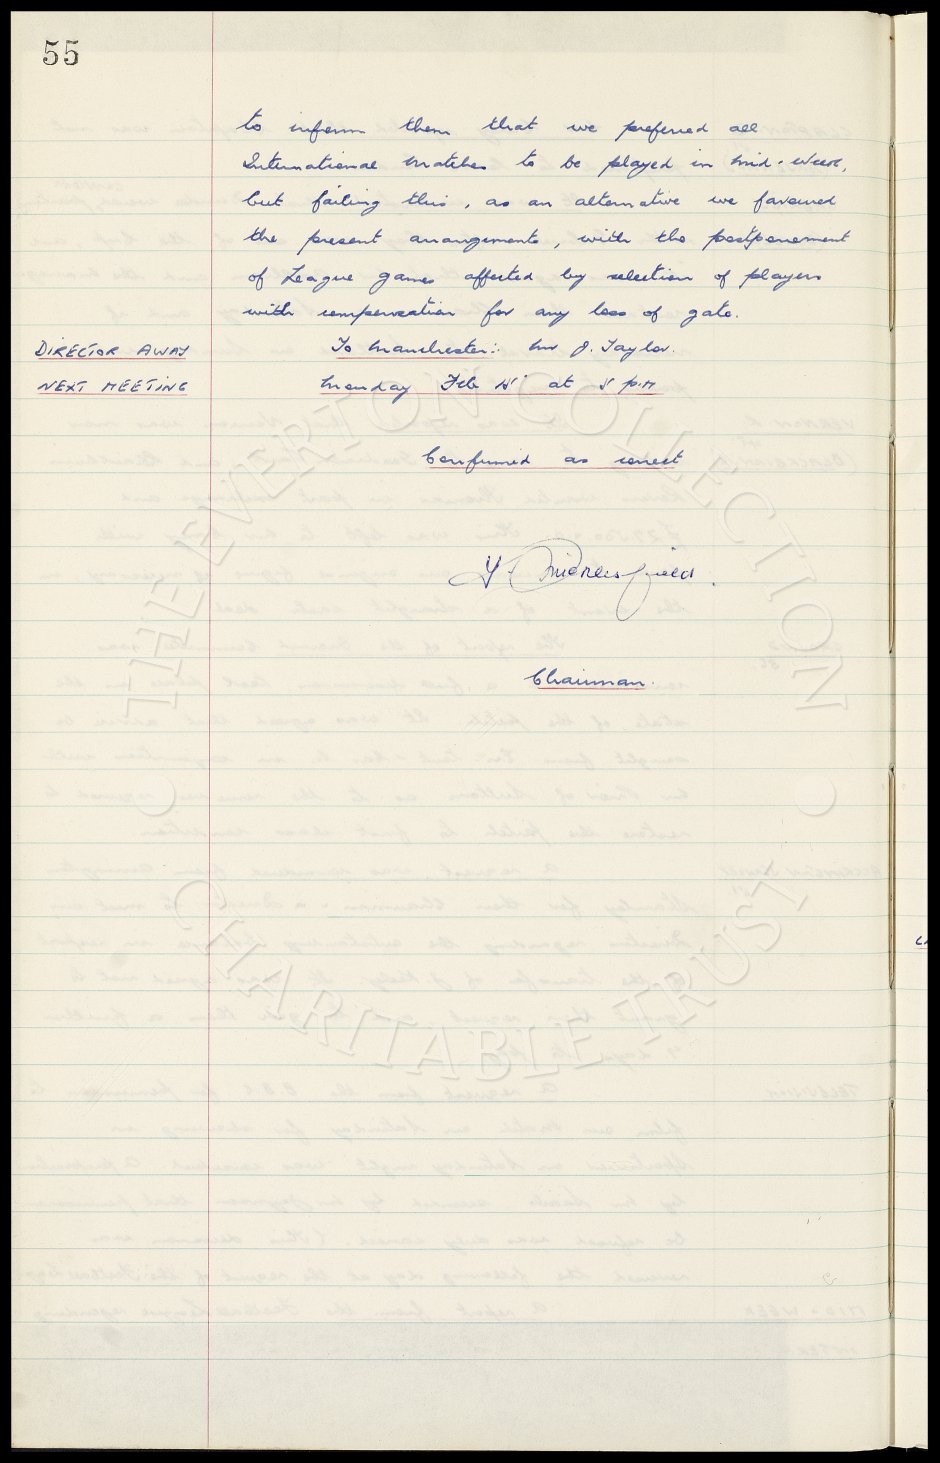 55
to inform them that we preferred all
International matches to be played in mid-week,
but failing this, as an alternative we favoured
the present arrangements, with the postponement
of League games affected by selection of players
with compensation for any loss of gate.
DIRECTOR AWAY To Manchester: Mr J. Taylor.
NEXT MEETING Monday Feb at 5 p.m
Confirmed as correct
Chairman.
THE EVERTON COLLECTION
CHARITABLE TRUST